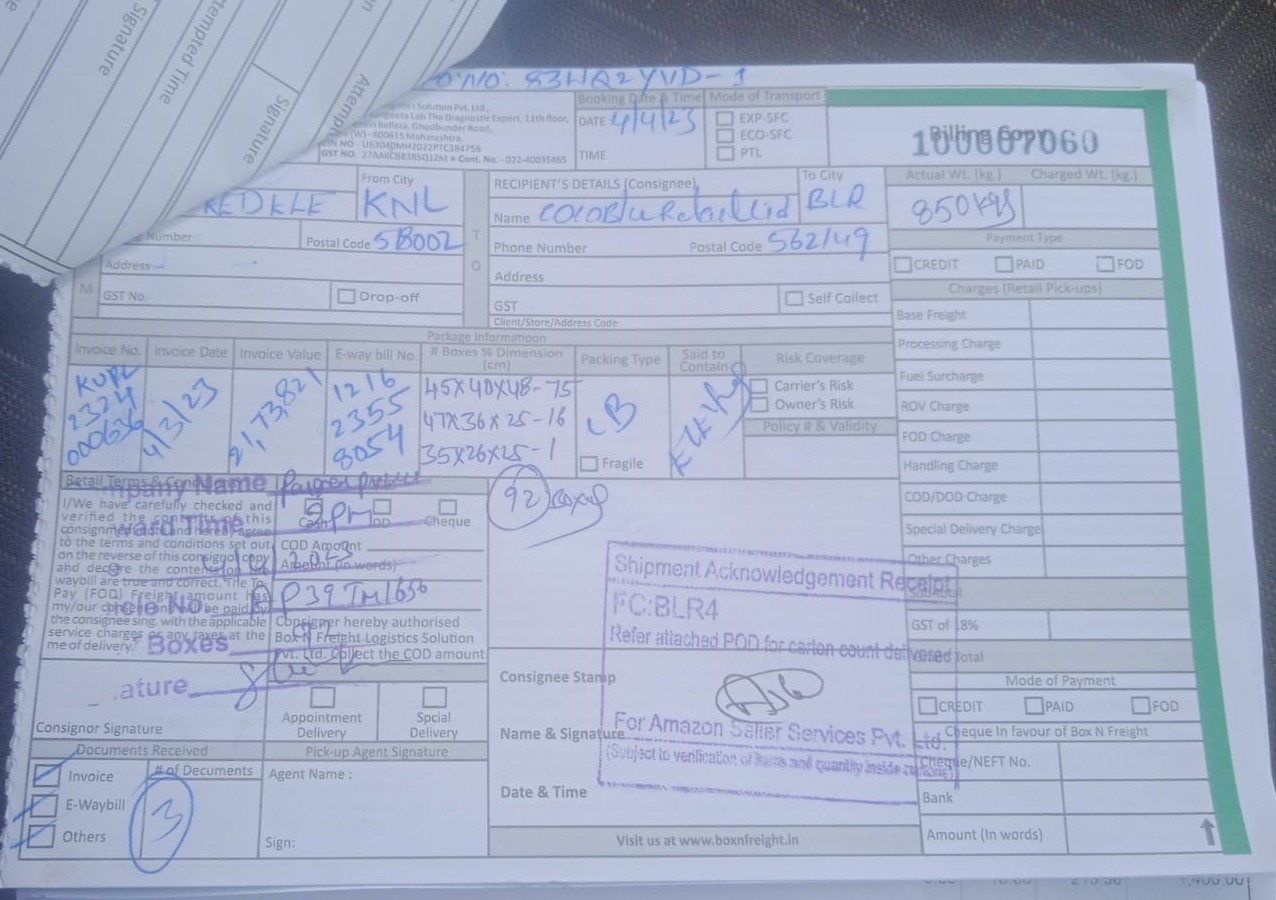 Signature
tempted Time
Signature
O.NO: 83HQ2YVD-1
s Solution Pvt. Ltd.,
Lab The Diagnostic Expert, 11th floor,
Ghodbunder Road,
(W) - 400615 Maharashtra,
GST NO. • Cont. No. - 022-40035465
Booking Date & Time
DATE 4/4/23
TIME
Mode of Transport
EXP-SFC
ECO-SFC
PTL
Billing Copy
100007060
From City
KNL
Number
Postal Code 518002
Address
GST No.
Drop-off
M
T
O
RECIPIENT'S DETAILS (Consignee)
To City
BLR
Name
Phone Number
Postal Code 562149
Address
GST
Self Collect
Client/Store/Address Code:
Actual Wt. (kg.)
Charged Wt. (kg.)
850 kgs
Payment Type
CREDIT
PAID
FOD
Charges (Retail Pick-ups)
Base Freight
Processing Charge
Fuel Surcharge
ROV Charge
FOD Charge
Handling Charge
COD/DOD Charge
Special Delivery Charge
Other Charges
GST of 18%
Total
Package Information
Invoice No.
Invoice Date
Invoice Value
E-way bill No.
# Boxes % Dimension (cm)
Packing Type
Said to Contain
Risk Coverage
2324
000636
4/3/23
21,73,821
1216
2355
8054
45X40X48-75
47X36X25-16
35X26X25-1
CB
Fragile
Carrier's Risk
Owner's Risk
Policy # & Validity
92 Boxes
Retail Terms & Conditions
I/We have carefully checked and
verified the contents of this
consignment and hereby agree
to the terms and conditions set out
on the reverse of this consignor copy
and declare the contents on the
waybill are true and correct. The To
Pay (FOD) Freight amount has
my/our consent to be paid by
the consignee sing. with the applicable
service charges or any taxes at the
me of delivery.
mpany Name
ward Time
9pm
icle No
AP39TM1656
Boxes
92
ature
Cash
DD
Cheque
COD Amount
Amount (In words)
Consigner hereby authorised
Box N Freight Logistics Solution
Pvt. Ltd. Collect the COD amount
Consignor Signature
Appointment Delivery
Spcial Delivery
Documents Received
# of Documents
Invoice
E-Waybill
Others
3
Pick-up Agent Signature
Agent Name :
Sign:
Shipment Acknowledgement Receipt
FC:BLR4
Refer attached POD for carton count delivered
For Amazon Seller Services Pvt. Ltd.
(Subject to verification of items and quantity inside cartons)
Consignee Stamp
Name & Signature
Date & Time
Visit us at www.boxnfreight.in
Mode of Payment
CREDIT
PAID
FOD
Cheque In favour of Box N Freight
Cheque/NEFT No.
Bank
Amount (In words)
1,400.00